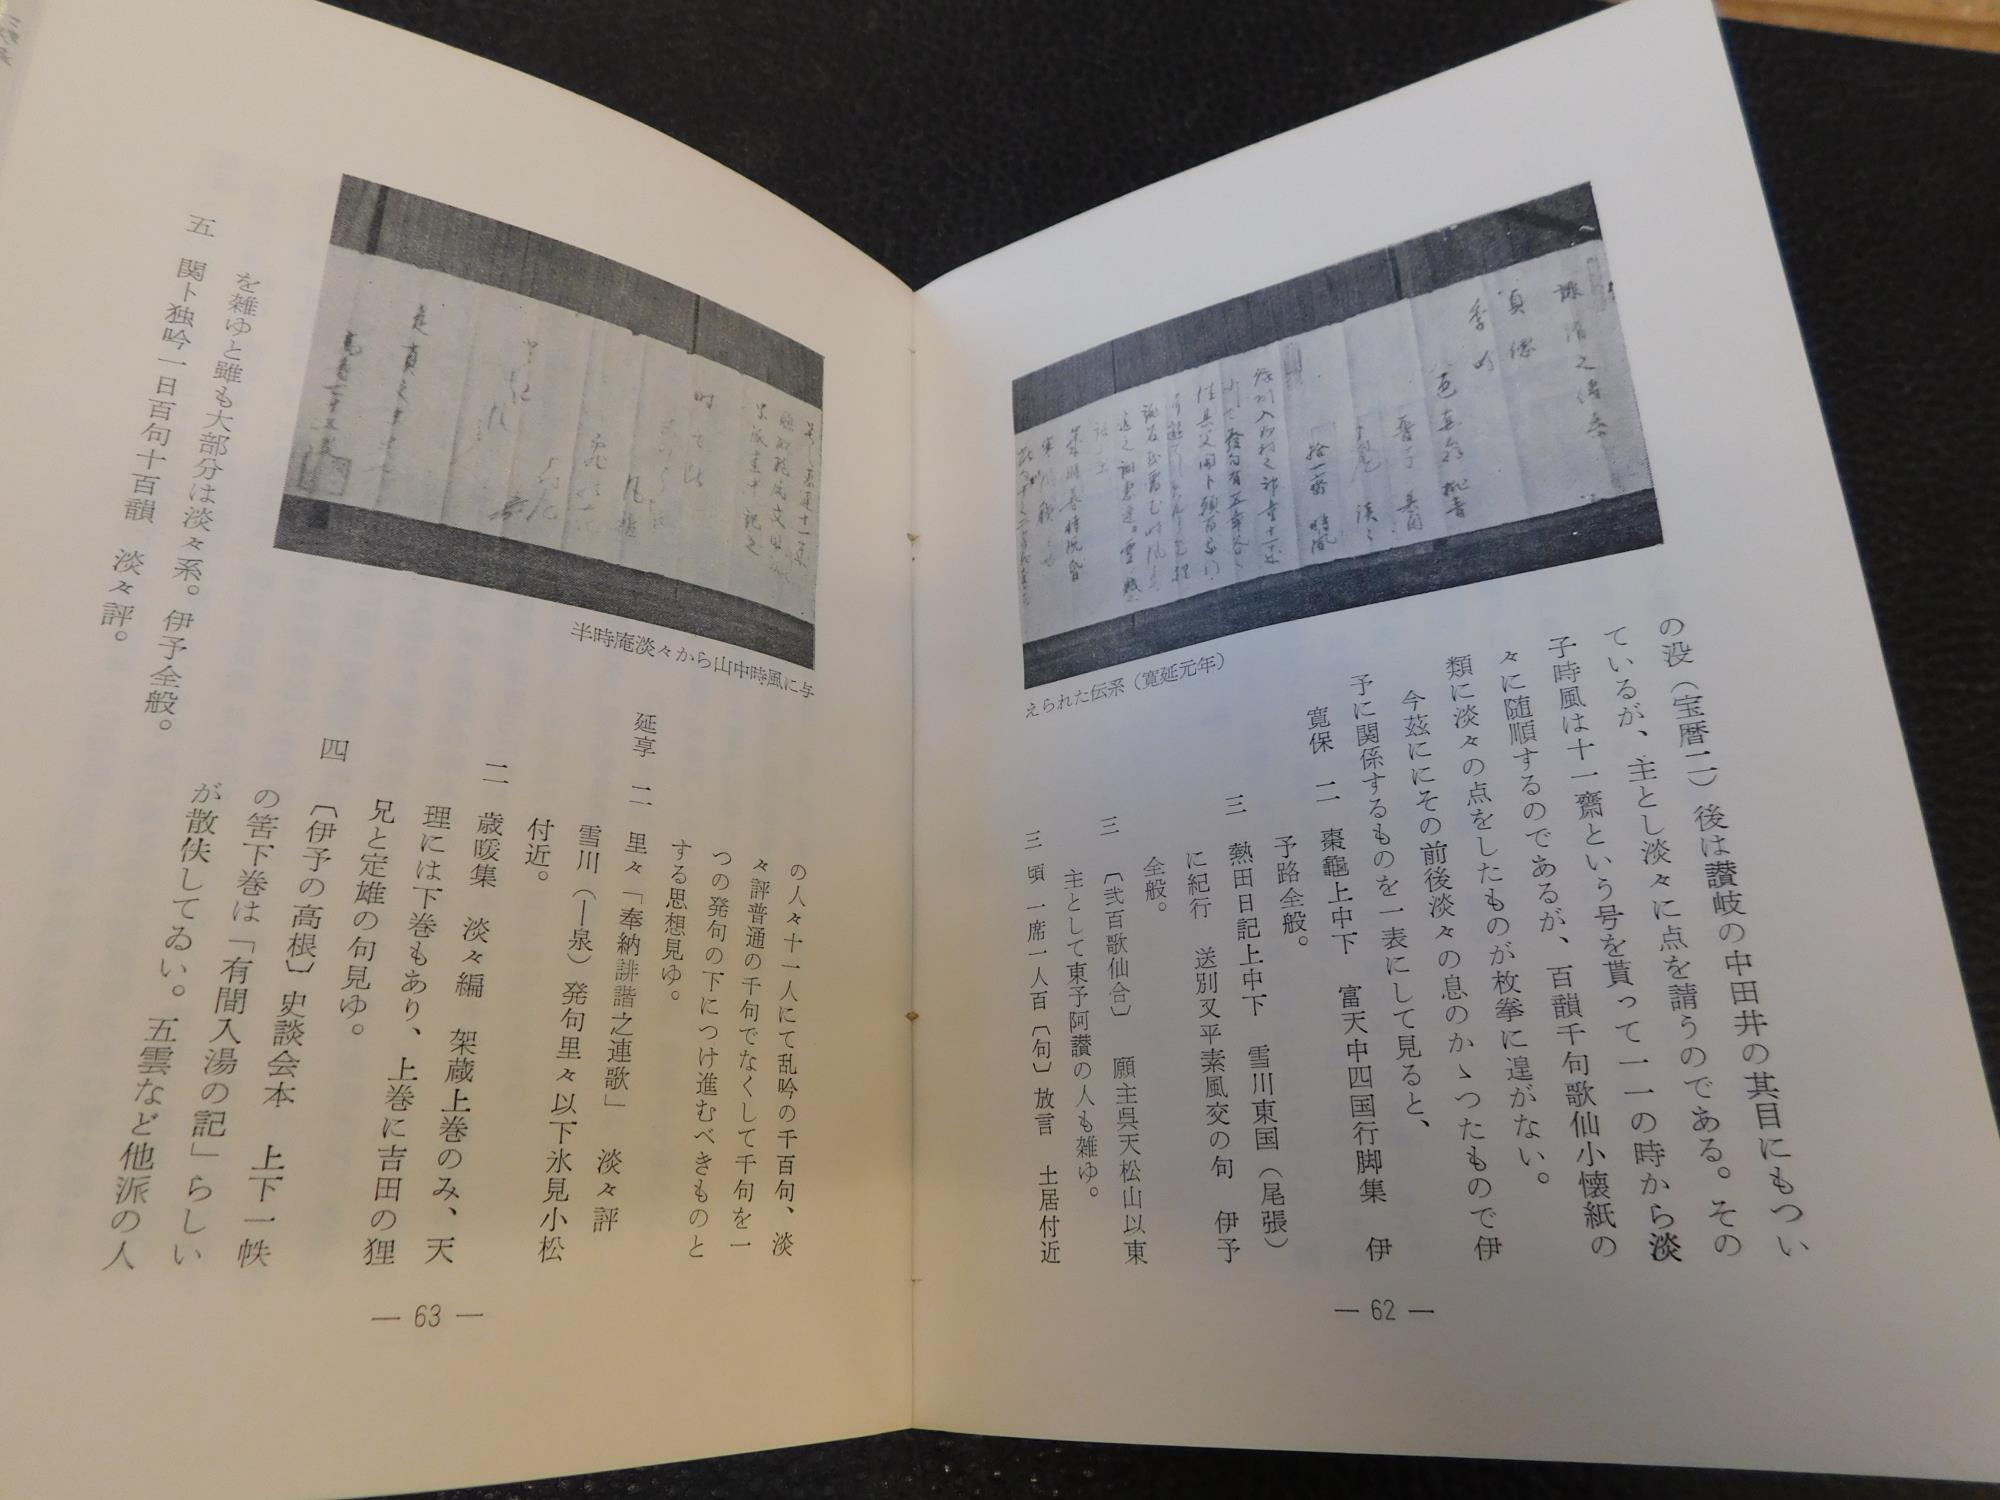 の没（宝暦二）後は讃岐の中田井の其目にもつい
ているが、主とし淡々に点を請うのである。その
子時風は十一齋という号を貰って一一の時から淡
々に随順するのであるが、百韻千句歌仙小懐紙の
類に淡々の点をしたものが枚挙に遑がない。
今茲ににその前後淡々の息のかゝつたもので伊
予に関係するものを一表にして見ると、
寛保　二　棗龜上中下　富天中四国行脚集　伊
予路全般。
三　熱田日記上中下　雪川東国（尾張）
に紀行　送別又平素風交の句　伊予
全般。
三　〔弐百歌仙合〕　願主呉天松山以東
主として東予阿讃の人も雑ゆ。
三　頃　一席一人百〔句〕放言　土居付近
えられた伝系（寛延元年）
― 62 ―
半時庵淡々から山中時風に与
の人々十一人にて乱吟の千百句、淡
々評普通の千句でなくして千句を一
つの発句の下につけ進むべきものと
する思想見ゆ。
延享　二　里々「奉納誹諧之連歌」　淡々評
雪川（―泉）発句里々以下氷見小松
付近。
二　歳暖集　淡々編　架蔵上巻のみ、天
理には下巻もあり、上巻に吉田の狸
兄と定雄の句見ゆ。
四　〔伊予の高根〕史談会本　上下一帙
の筈下巻は「有間入湯の記」らしい
が散佚してゐい。五雲など他派の人
を雑ゆと雖も大部分は淡々系。伊予全般。
五　関ト独吟一日百句十百韻　淡々評。
― 63 ―